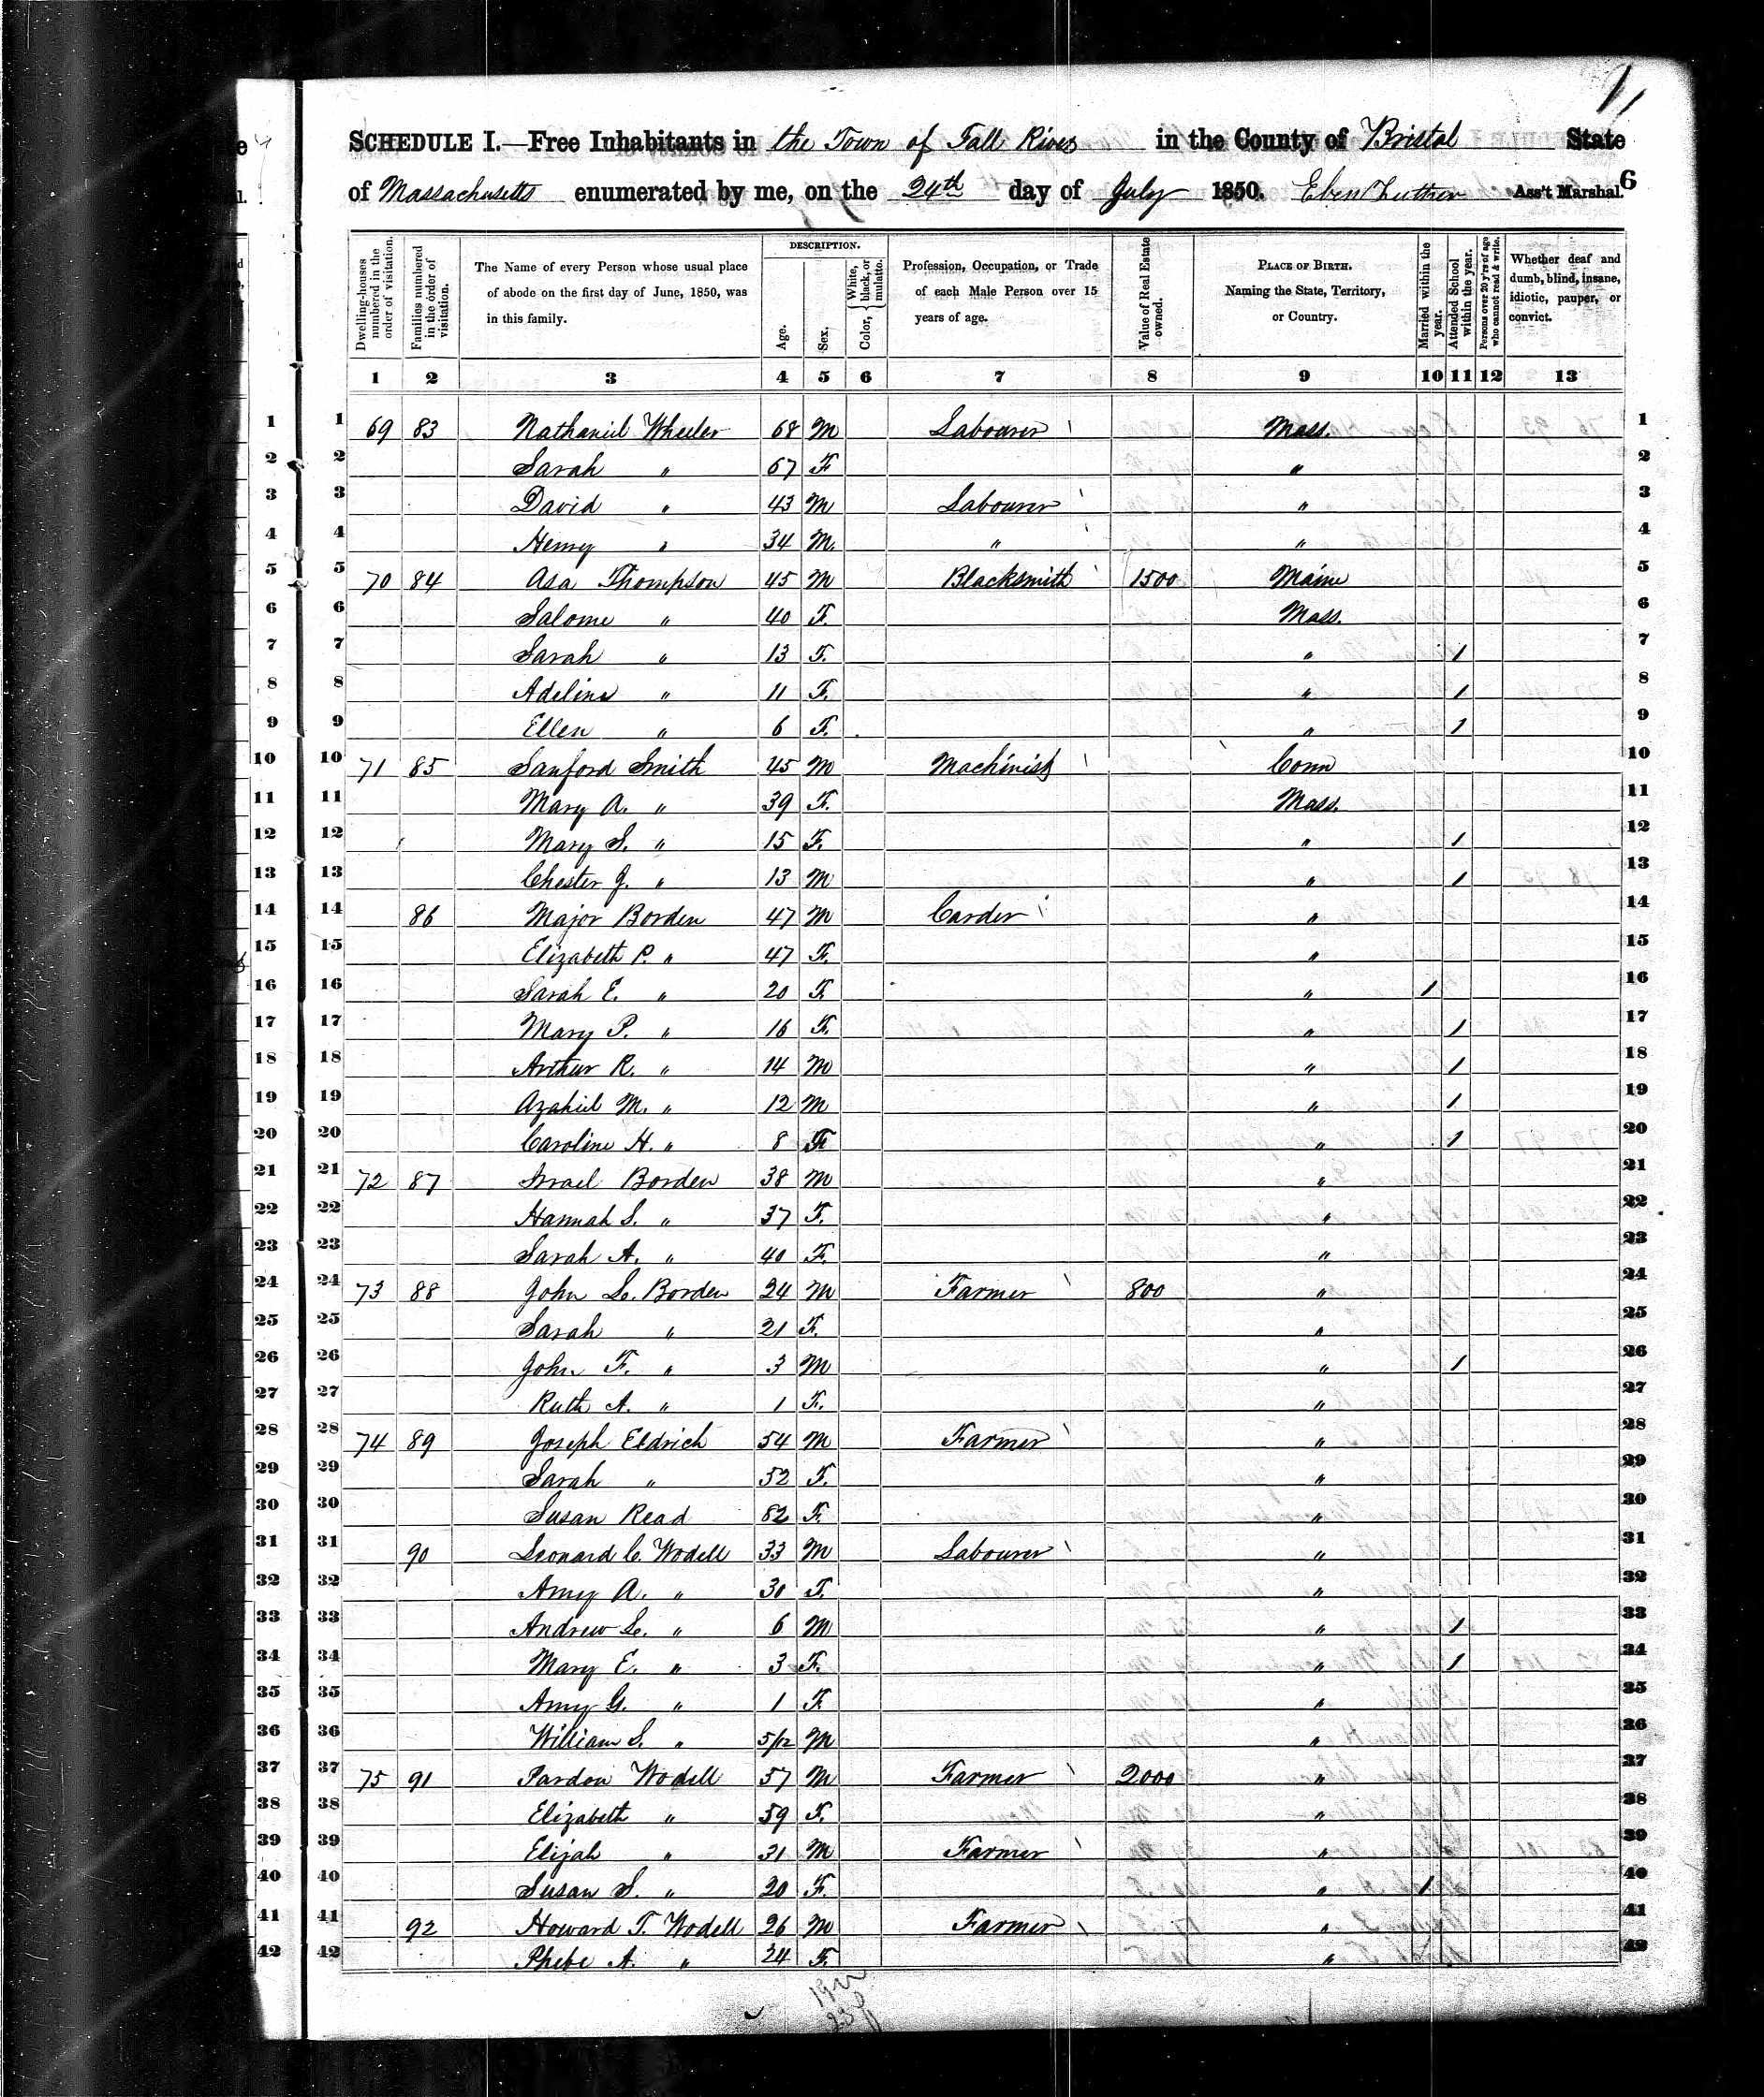 1
SCHEDULE I.—Free Inhabitants in the Town of Fall River in the County of Bristol State
of Massachusetts enumerated by me, on the 24th day of July 1850. Eben Luther Ass't Marshal. 6
Dwelling-houses numbered in the order of visitation. Families numbered in the order of visitation. The Name of every Person whose usual place of abode on the first day of June, 1850, was in this family. DESCRIPTION. Age. Sex. Color, White, black, or mulatto. Profession, Occupation, or Trade of each Male Person over 15 years of age. Value of Real Estate owned. PLACE OF BIRTH. Naming the State, Territory, or Country. Married within the year. Attended School within the year. Persons over 20 y'rs of age who cannot read & write. Whether deaf and dumb, blind, insane, idiotic, pauper, or convict.
1 2 3 4 5 6 7 8 9 10 11 12 13
1 69 83 Nathaniel Wheeler 68 M Labourer Mass. 1
2 Sarah " 67 F " 2
3 David " 43 M Labourer " 3
4 Henry " 34 M. " " 4
5 70 84 Asa Thompson 45 M Blacksmith 1500 Maine 5
6 Salome " 40 F. Mass. 6
7 Sarah " 13 F. " 1 7
8 Adeline " 11 F. " 1 8
9 Ellen " 6 F. " 1 9
10 71 85 Sanford Smith 45 M Machinist Conn 10
11 Mary A. " 39 F. Mass. 11
12 Mary S. " 15 F. " 1 12
13 Chester J. " 13 M " 1 13
14 86 Major Borden 47 M Carder " 14
15 Elizabeth P. " 47 F. " 15
16 Sarah E. " 20 F. " 1 16
17 Mary P. " 16 F. " 1 17
18 Arthur R. " 14 M " 1 18
19 Azahiel M. " 12 M " 1 19
20 Caroline H. " 8 F " 1 20
21 72 87 Israel Borden 38 M " 21
22 Hannah S. " 37 F. " 22
23 Sarah A. " 40 F. " 23
24 73 88 John L. Borden 24 M Farmer 800 " 24
25 Sarah " 21 F. " 25
26 John F. " 3 M " 1 26
27 Ruth A. " 1 F. " 27
28 74 89 Joseph Eldrich 54 M Farmer " 28
29 Sarah " 52 F. " 29
30 Susan Read 82 F. " 30
31 90 Leonard C. Wodell 33 M Labourer " 31
32 Amey A. " 30 F. " 32
33 Andrew L. " 6 M " 1 33
34 Mary E. " 3 F. " 1 34
35 Amey G. " 1 F. " 35
36 William S. " 5/12 M " 36
37 75 91 Pardon Wodell 57 M Farmer 2000 " 37
38 Elizabeth " 59 F. " 38
39 Elijah " 31 M Farmer " 39
40 Susan S. " 20 F. " 1 40
41 92 Howard T. Wodell 26 M Farmer " 41
42 Phebe A. " 24 F. " 42